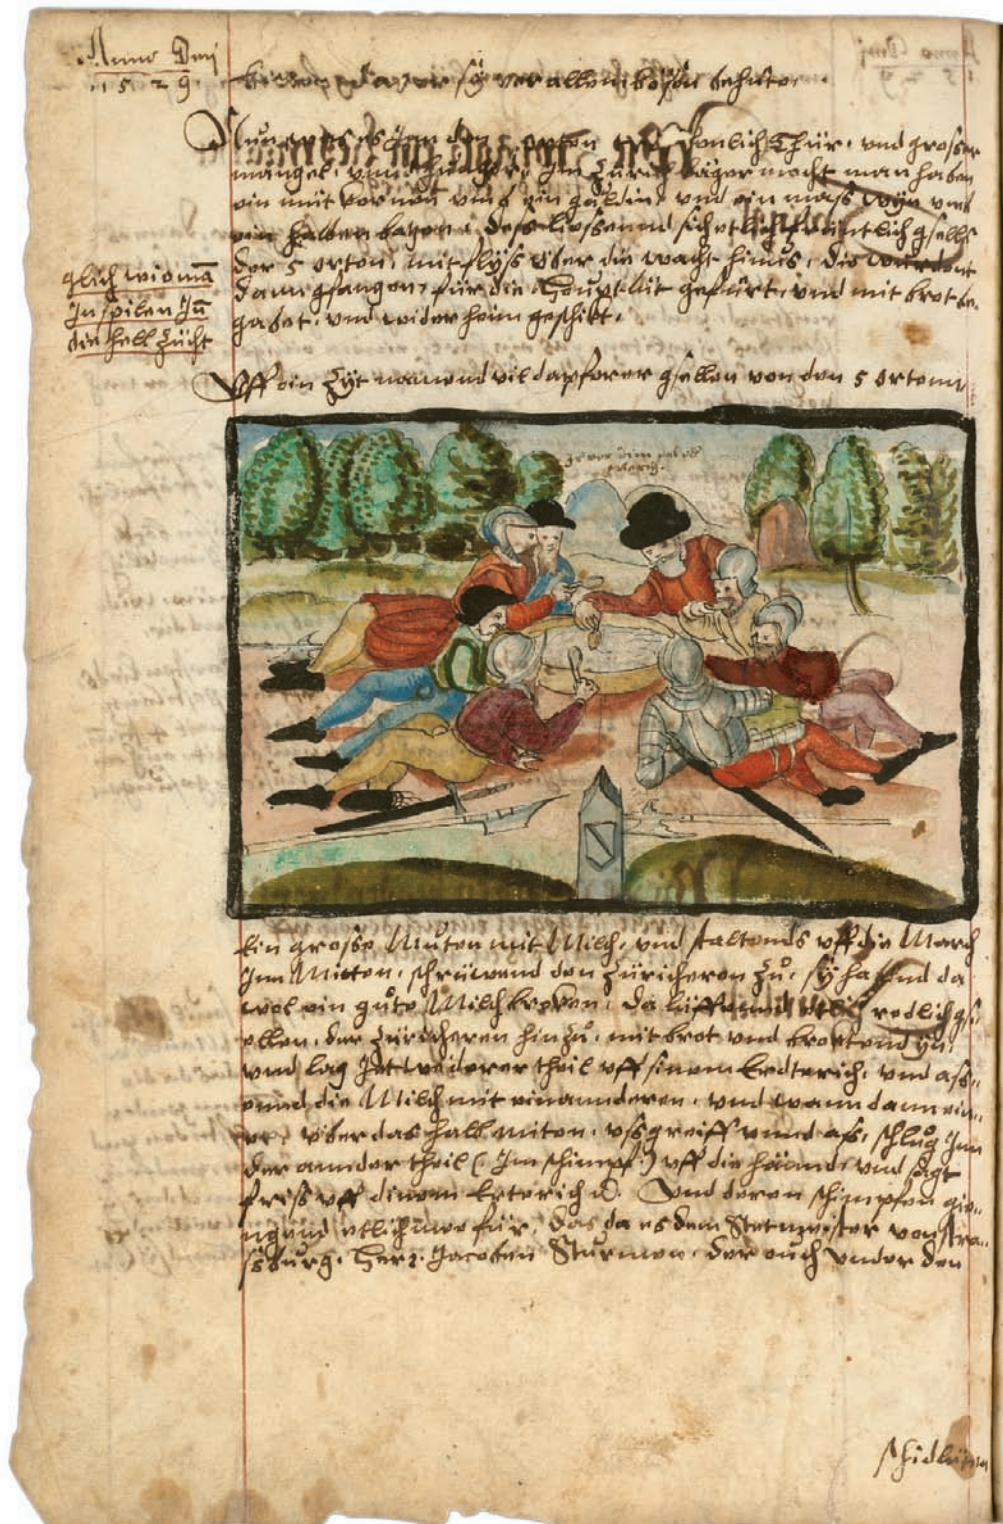 Anno Dnj
1529.
vor allem bösen behüte.
Nun was es Inn den orten Thür, vnd grosser
mangel, Inn Zürich läger macht man haben
ein mütt kernen vmb ein guldin, vnd ein mass wÿn vmb
ein halben batzen. Dess liessennd sich etlich gsellen
der 5 orten, mit flÿss über die wacht hinus, die wurdent
dann gfangen, für die Houptlüt gefürt, vnd mit brot be,
gabet, vnd wider heim geschikt.
glich wie man
Jn spilen Jn
die hell zücht
Vff ein Zÿt namend vil dapferer gsellen von den 5 orten
Ein grosse Můten mit Milch, vnd staltends vff die March
Jnn Mitten, schrüwend den Züricheren zů, sÿ habend da
wol ein gůte Milch, Da lüffennd etlich redlich gs,
ellen, der Züricheren hinzů, mit brot vnd brocktend ÿn,
vnd lag Jetwederer theil vff sinem Erdterich, vnd ass,,
ennd die Milch mit einannderen, vnd wann dann ein,,
er, über das halb můten, vssgreiff vnnd ass, schlůg Jnn
der annder theil (Jm schimpf) vff die händ, vnd sagt
friss vff dinem Erterich. Vnd deren schimpfen gie,,
ngend etlich me für, das da es dem Stetmeister von Stra,,
ssburg, Herr Jacoben Sturmen, der ouch vnder den
schidlüten